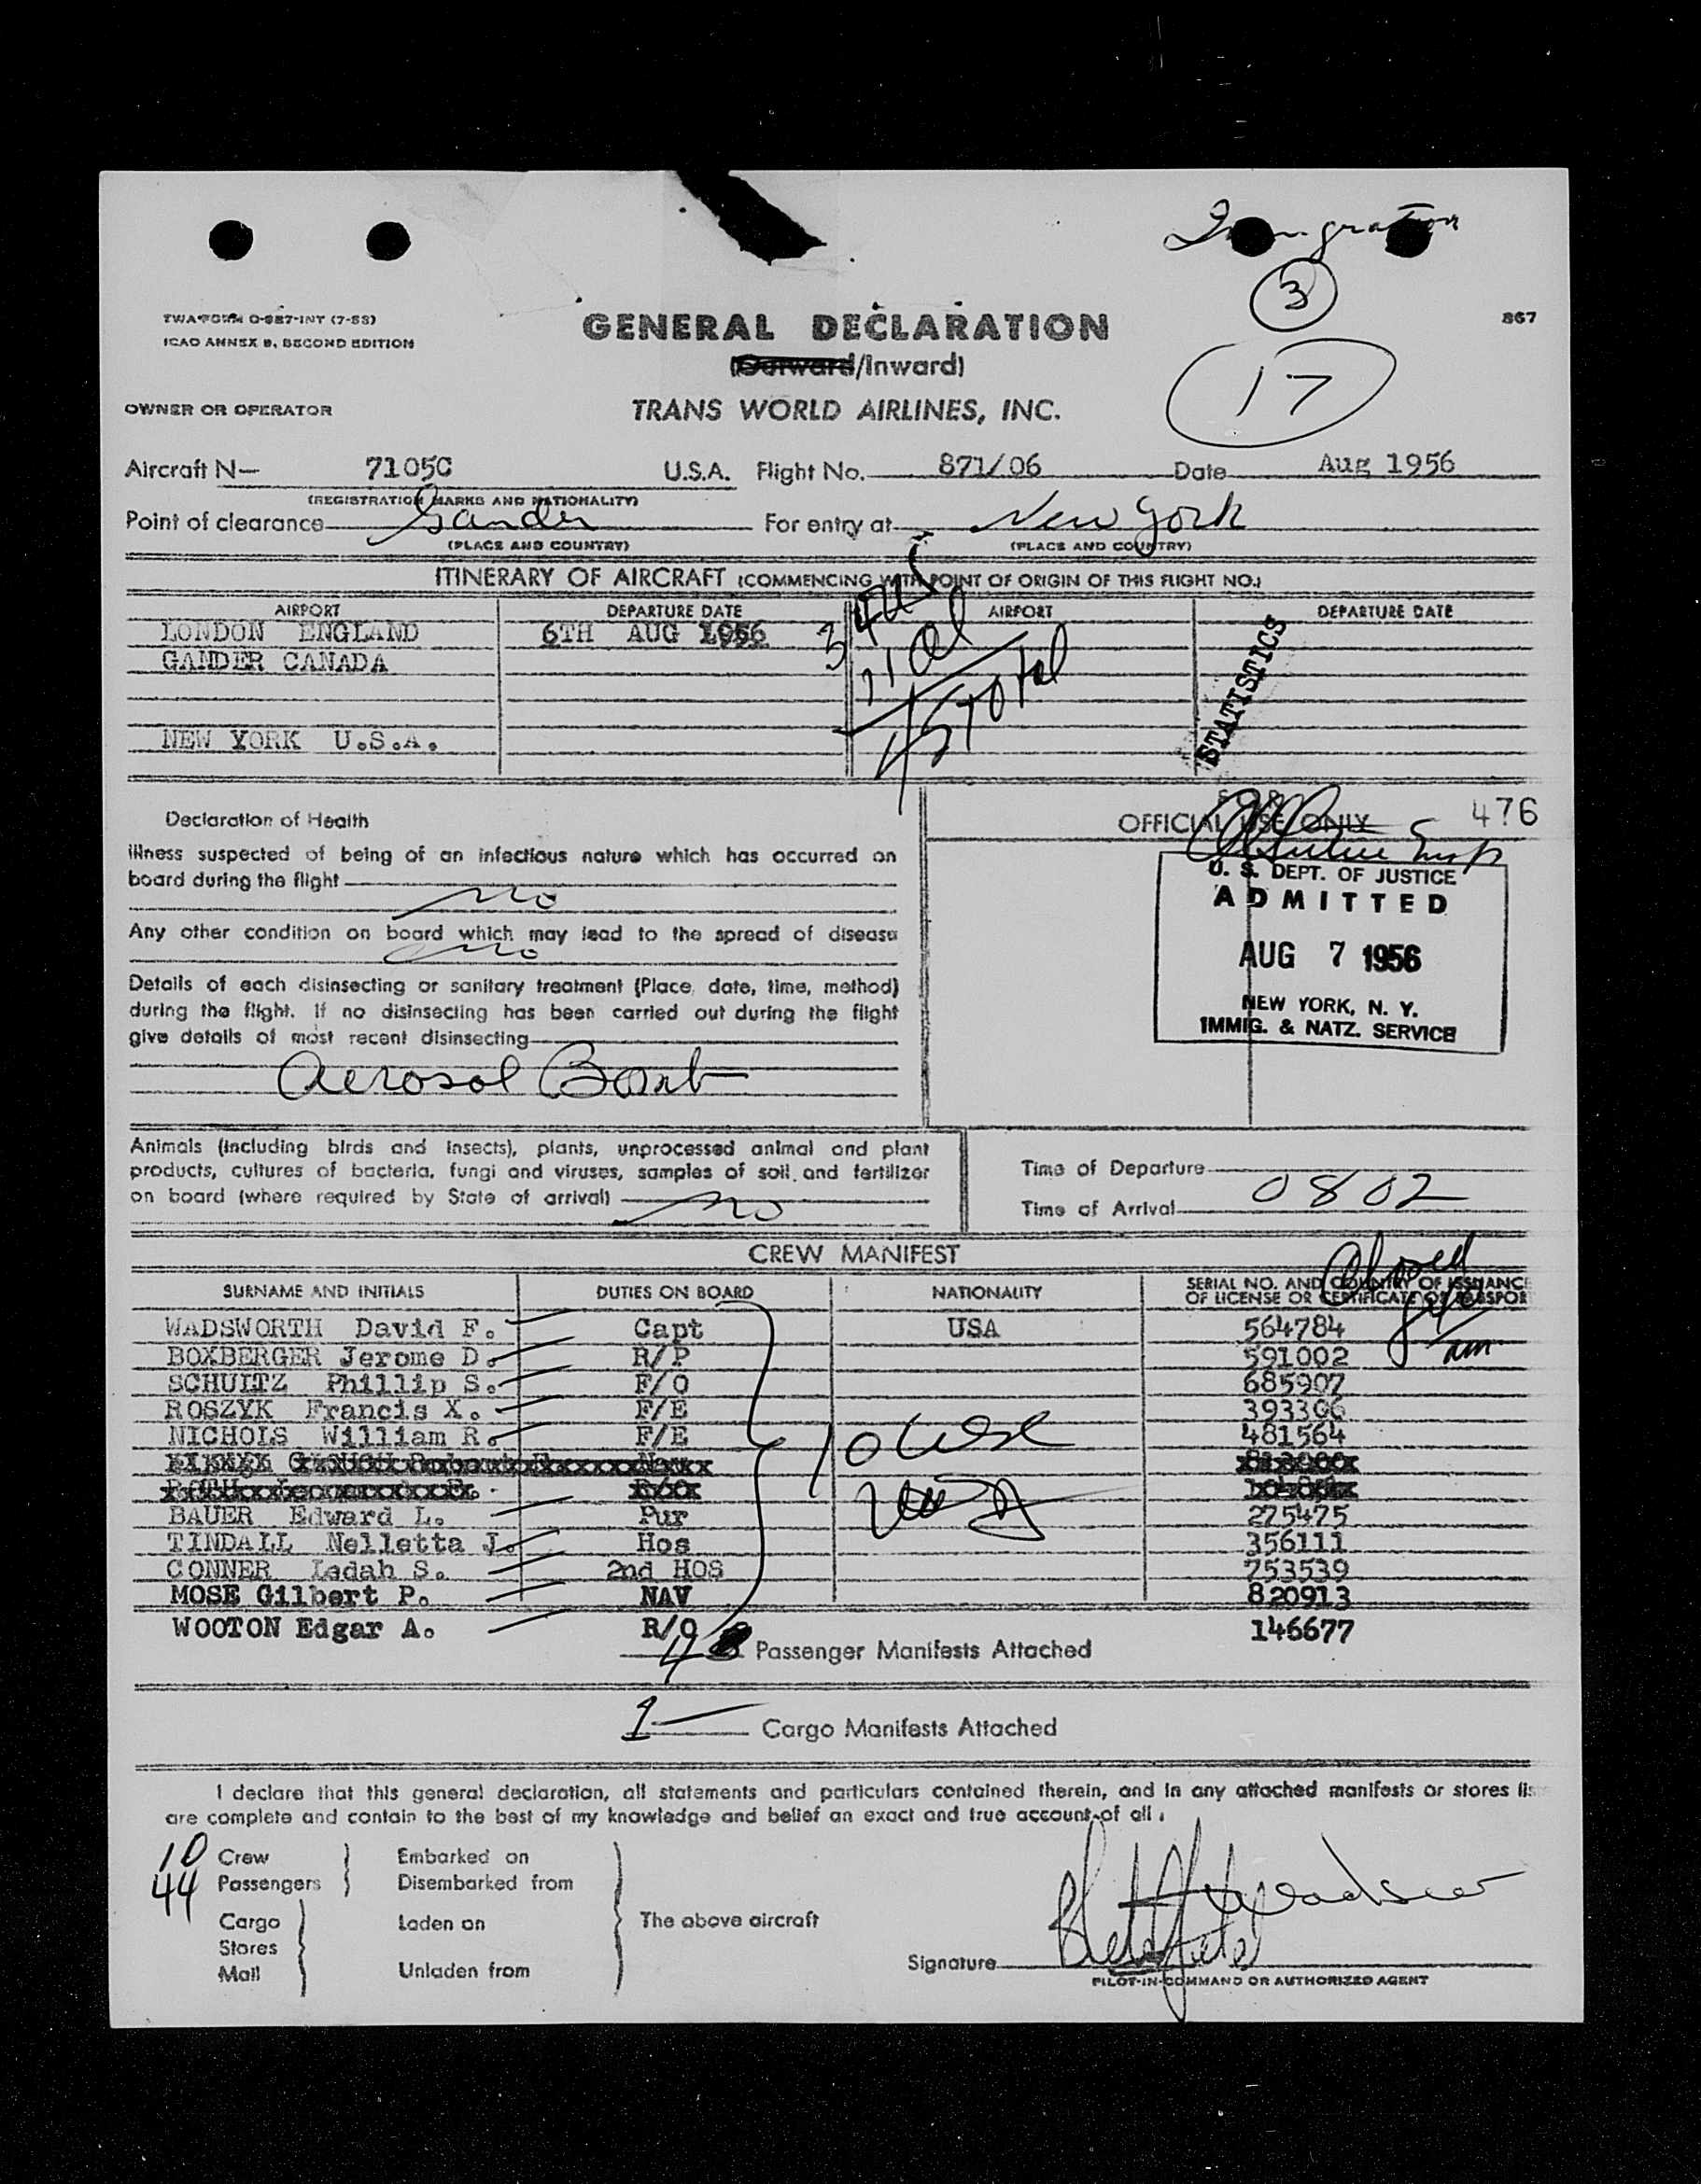 Immigration
3
TWA FORM O-987-INT (7-55)
ICAO ANNEX 9, SECOND EDITION
GENERAL DECLARATION
867
(Outward/Inward)
17
OWNER OR OPERATOR
TRANS WORLD AIRLINES, INC.
Aircraft N— 7105C U.S.A. Flight No. 871/06 Date Aug 1956
(REGISTRATION MARKS AND NATIONALITY)
Point of clearance Gander For entry at New York
(PLACE AND COUNTRY) (PLACE AND COUNTRY)
ITINERARY OF AIRCRAFT (COMMENCING WITH POINT OF ORIGIN OF THIS FLIGHT NO.)
AIRPORT DEPARTURE DATE AIRPORT DEPARTURE DATE
LONDON ENGLAND 6TH AUG 1956
GANDER CANADA
NEW YORK U.S.A.
Total
STATISTICS
FOR
OFFICIAL USE ONLY 476
Declaration of Health
Illness suspected of being of an infectious nature which has occurred on
board during the flight
no
Any other condition on board which may lead to the spread of disease
no
Details of each disinsecting or sanitary treatment (Place, date, time, method)
during the flight. If no disinsecting has been carried out during the flight
give details of most recent disinsecting
Aerosol Bomb
U. S. DEPT. OF JUSTICE
ADMITTED
AUG 7 1956
NEW YORK, N. Y.
IMMIG. & NATZ. SERVICE
Animals (including birds and insects), plants, unprocessed animal and plant
products, cultures of bacteria, fungi and viruses, samples of soil, and fertilizer
on board (where required by State of arrival) no
Time of Departure
Time of Arrival 0802
CREW MANIFEST
SURNAME AND INITIALS DUTIES ON BOARD NATIONALITY SERIAL NO. AND COUNTRY OF ISSUANC
OF LICENSE OR CERTIFICATE OR PASSPOR
WADSWORTH David F. Capt USA 564784
BOXBERGER Jerome D. R/P 591002
SCHUITZ Phillip S. F/O 685907
ROSZYK Francis X. F/E 393306
NICHOLS William R. F/E 481564
BAUER Edward L. Pur 275475
TINDALL Nelletta J. Hos 356111
CONNER Ledah S. 2nd HOS 753539
MOSE Gilbert P. NAV 820913
WOOTON Edgar A. R/O 146677
4 Passenger Manifests Attached
1 Cargo Manifests Attached
I declare that this general declaration, all statements and particulars contained therein, and in any attached manifests or stores lis
are complete and contain to the best of my knowledge and belief an exact and true account of all
10 Crew Embarked on
44 Passengers Disembarked from
Cargo Laden on The above aircraft
Stores
Mail Unladen from
Signature
PILOT-IN-COMMAND OR AUTHORIZED AGENT